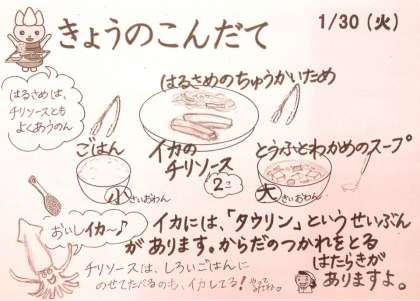 きょうのこんだて
1/30(火)
はるさめは、
チリソースとも
よくあうのん
はるさめのちゅうかいため
ごはん
小 さいおわん
イカの
チリソース
2こ
とうふとわかめのスープ
大 きいおわん
おいしイカ〜♪
イカには、「タウリン」というせいぶん
があります。からだのつかれをとる
はたらきが
ありますよ。
チリソースは、しろいごはんに
のせてたべるのも、イカしてる!